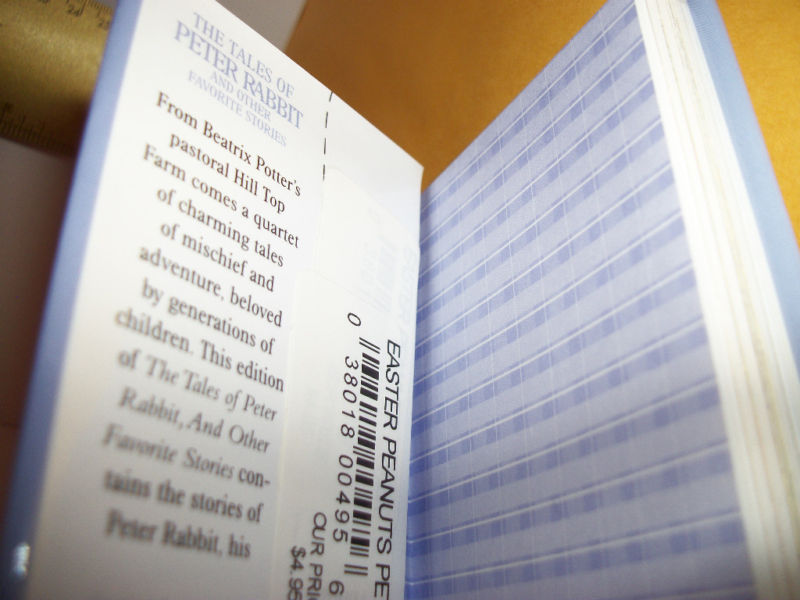 THE TALES OF
PETER RABBIT
AND OTHER
FAVORITE STORIES
From Beatrix Potter's
pastoral Hill Top
Farm comes a quartet
of charming tales
of mischief and
adventure, beloved
by generations of
children. This edition
of The Tales of Peter
Rabbit, And Other
Favorite Stories con-
tains the stories of
Peter Rabbit, his
EASTER PEANUTS PE
0 38018 00495 6
OUR PRI
$4.95